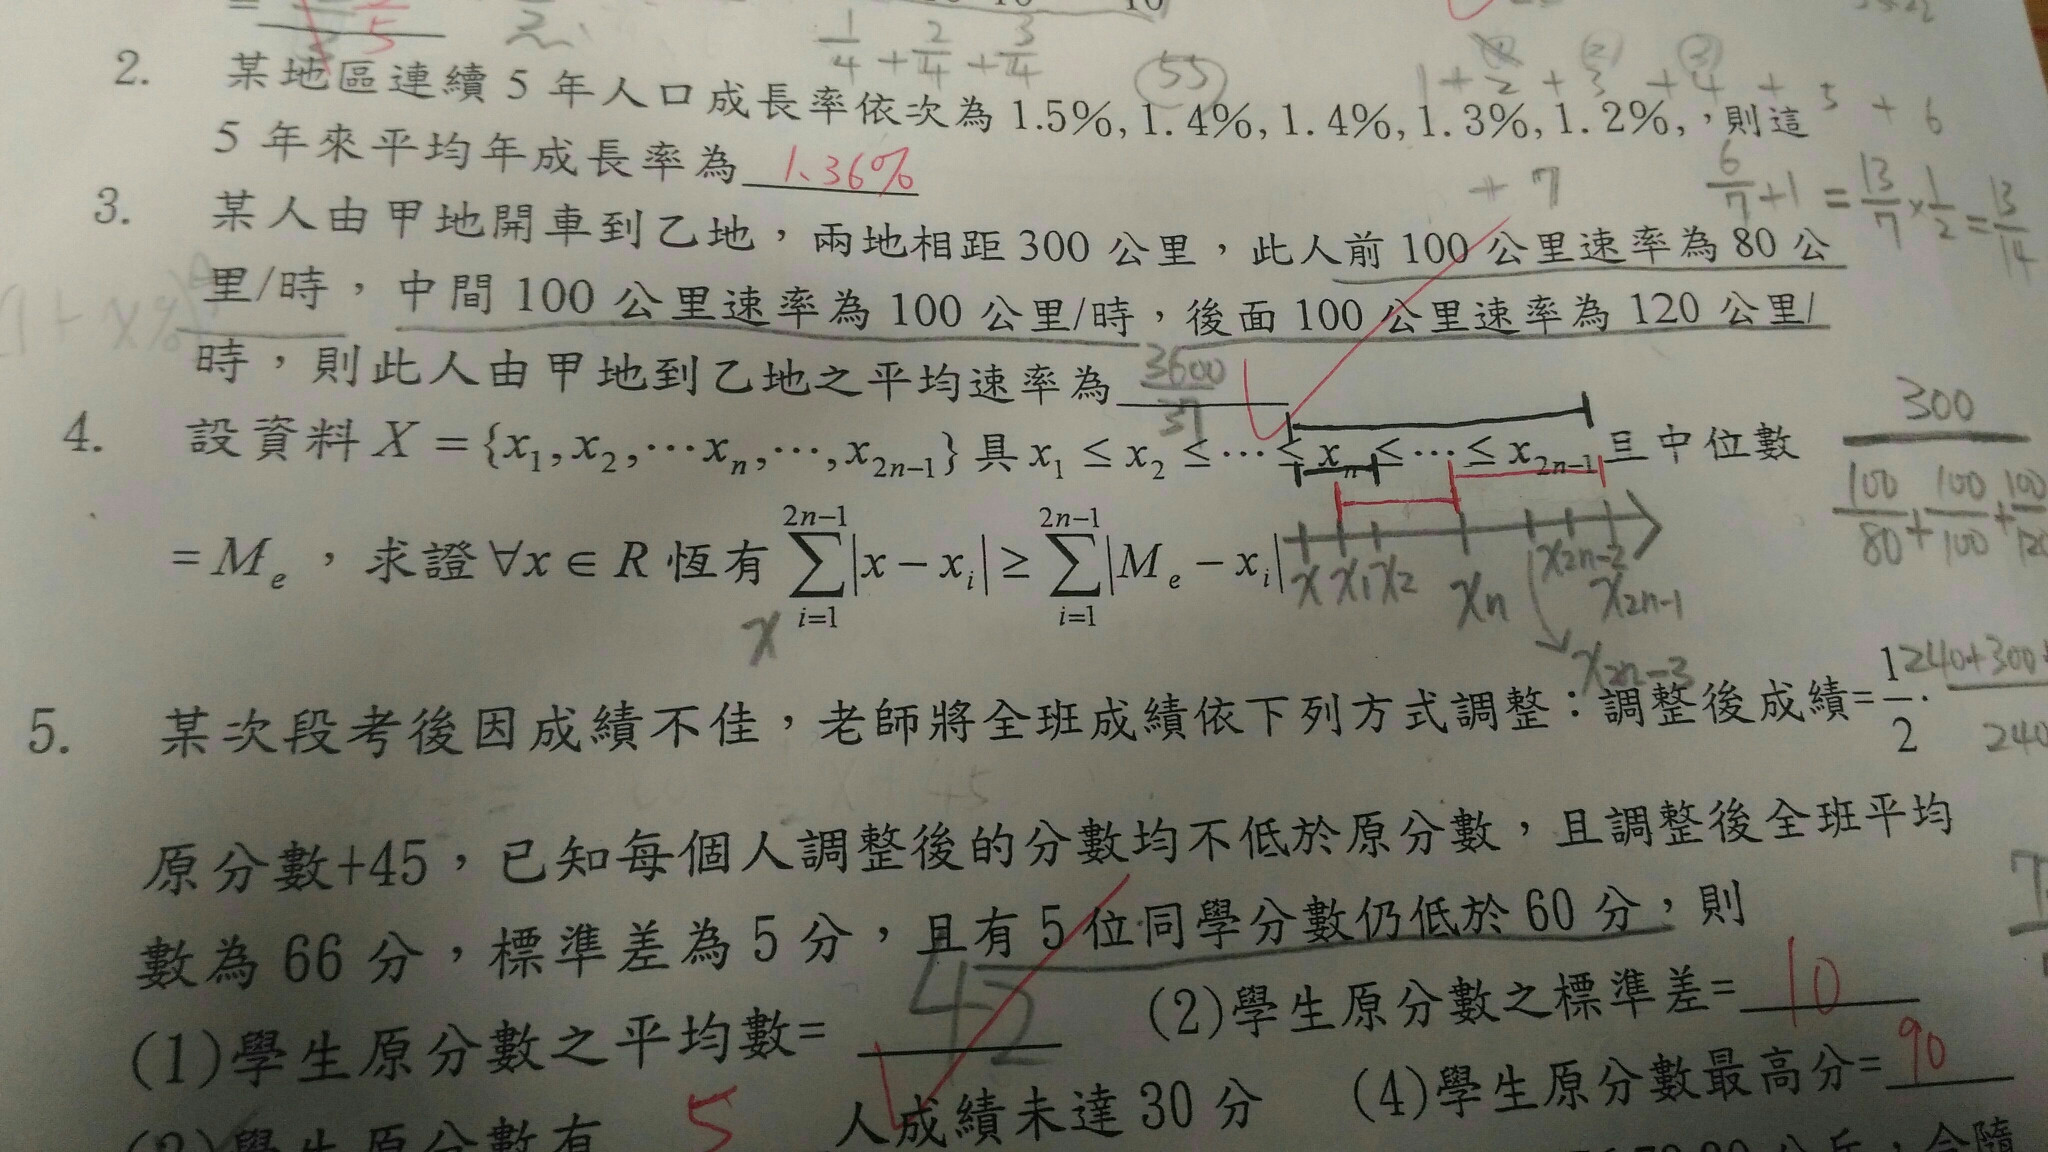 5
1/4 + 2/4 + 3/4
55
1 + 2 + 3 + 4 + 5 + 6
2. 某地區連續 5 年人口成長率依次為 1.5%, 1.4%, 1.4%, 1.3%, 1.2%,,則這
5 年來平均年成長率為 1.36%
+ 7
6/7 + 1 = 13/7 × 1/2 = 13/14
3. 某人由甲地開車到乙地，兩地相距 300 公里，此人前 100 公里速率為 80 公
里/時，中間 100 公里速率為 100 公里/時，後面 100 公里速率為 120 公里/
時，則此人由甲地到乙地之平均速率為 3600/37
300
100/80 + 100/100 + 100/120
4. 設資料 X = {x₁, x₂, ⋯xₙ, ⋯, x₂ₙ₋₁} 具 x₁ ≤ x₂ ≤ ⋯ ≤ xₙ ≤ ⋯ ≤ x₂ₙ₋₁ 且中位數
= Mₑ ，求證 ∀x ∈ R 恆有 ∑_{i=1}^{2n−1} |x − xᵢ| ≥ ∑_{i=1}^{2n−1} |Mₑ − xᵢ|
x x₁ x₂ xₙ x₂ₙ₋₂ x₂ₙ₋₁
x₂ₙ₋₃
x
240+300+
240
5. 某次段考後因成績不佳，老師將全班成績依下列方式調整：調整後成績=1/2·
原分數+45，已知每個人調整後的分數均不低於原分數，且調整後全班平均
數為 66 分，標準差為 5 分，且有 5 位同學分數仍低於 60 分，則
(1)學生原分數之平均數= 42 (2)學生原分數之標準差= 10
(3)學生原分數有 5 人成績未達 30 分 (4)學生原分數最高分= 90
公斤，今隨